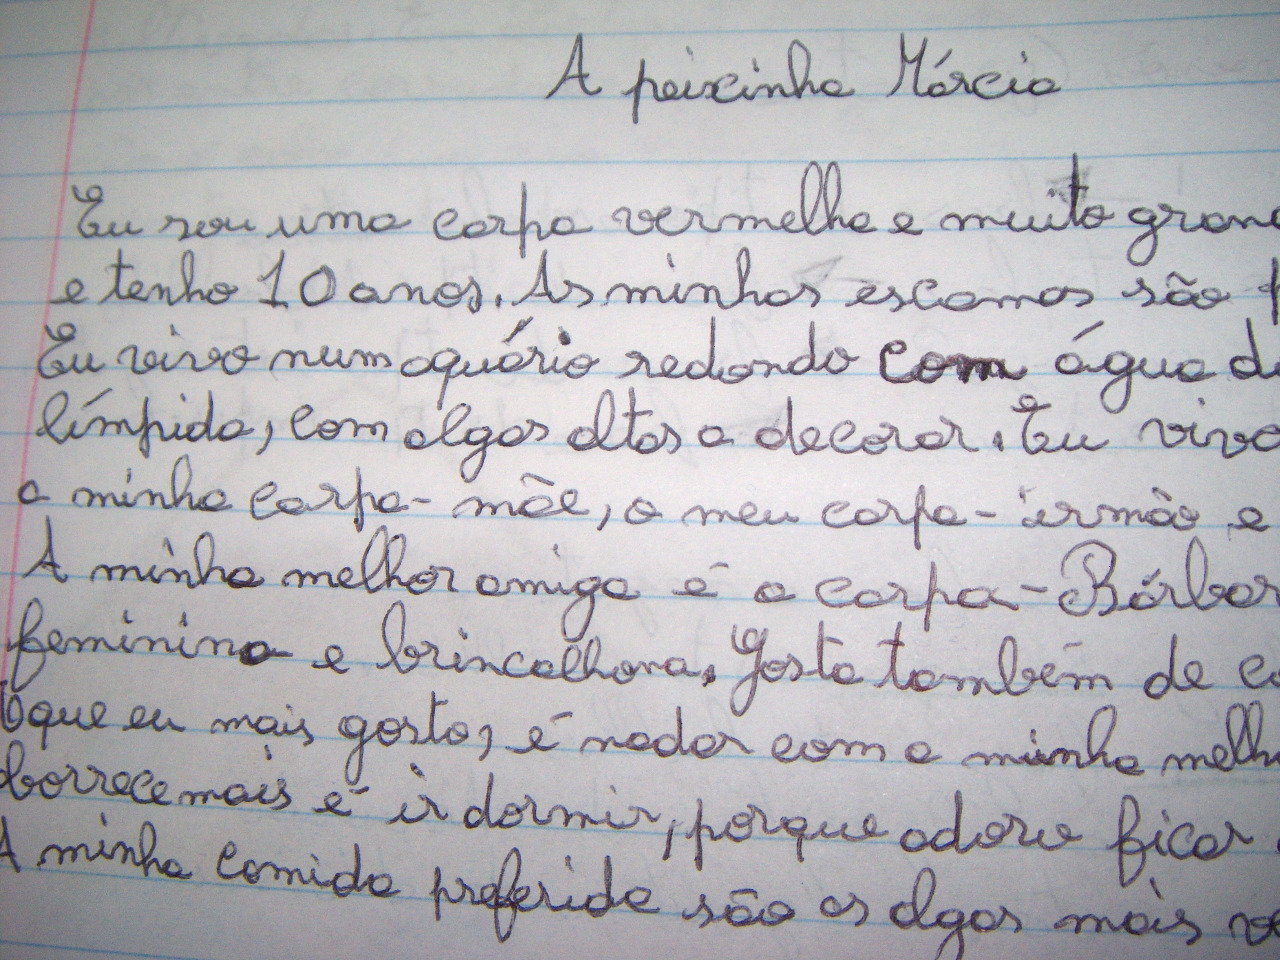 A peixinha Márcia
Eu sou uma carpa vermelha e muito gran
e tenho 10 anos. As minhas escamas são
Eu vivo num aquário redondo com água
límpida, com algas altas a decorar. Eu vivo
a minha carpa-mãe, o meu carpa-irmão e
A minha melhor amiga é a carpa-Bárbar
feminina e brincalhona. Gosta também de
O que eu mais gosto, é nadar com a minha melh
borrece mais é ir dormir, porque adoro ficar
A minha comida preferida são as algas mais